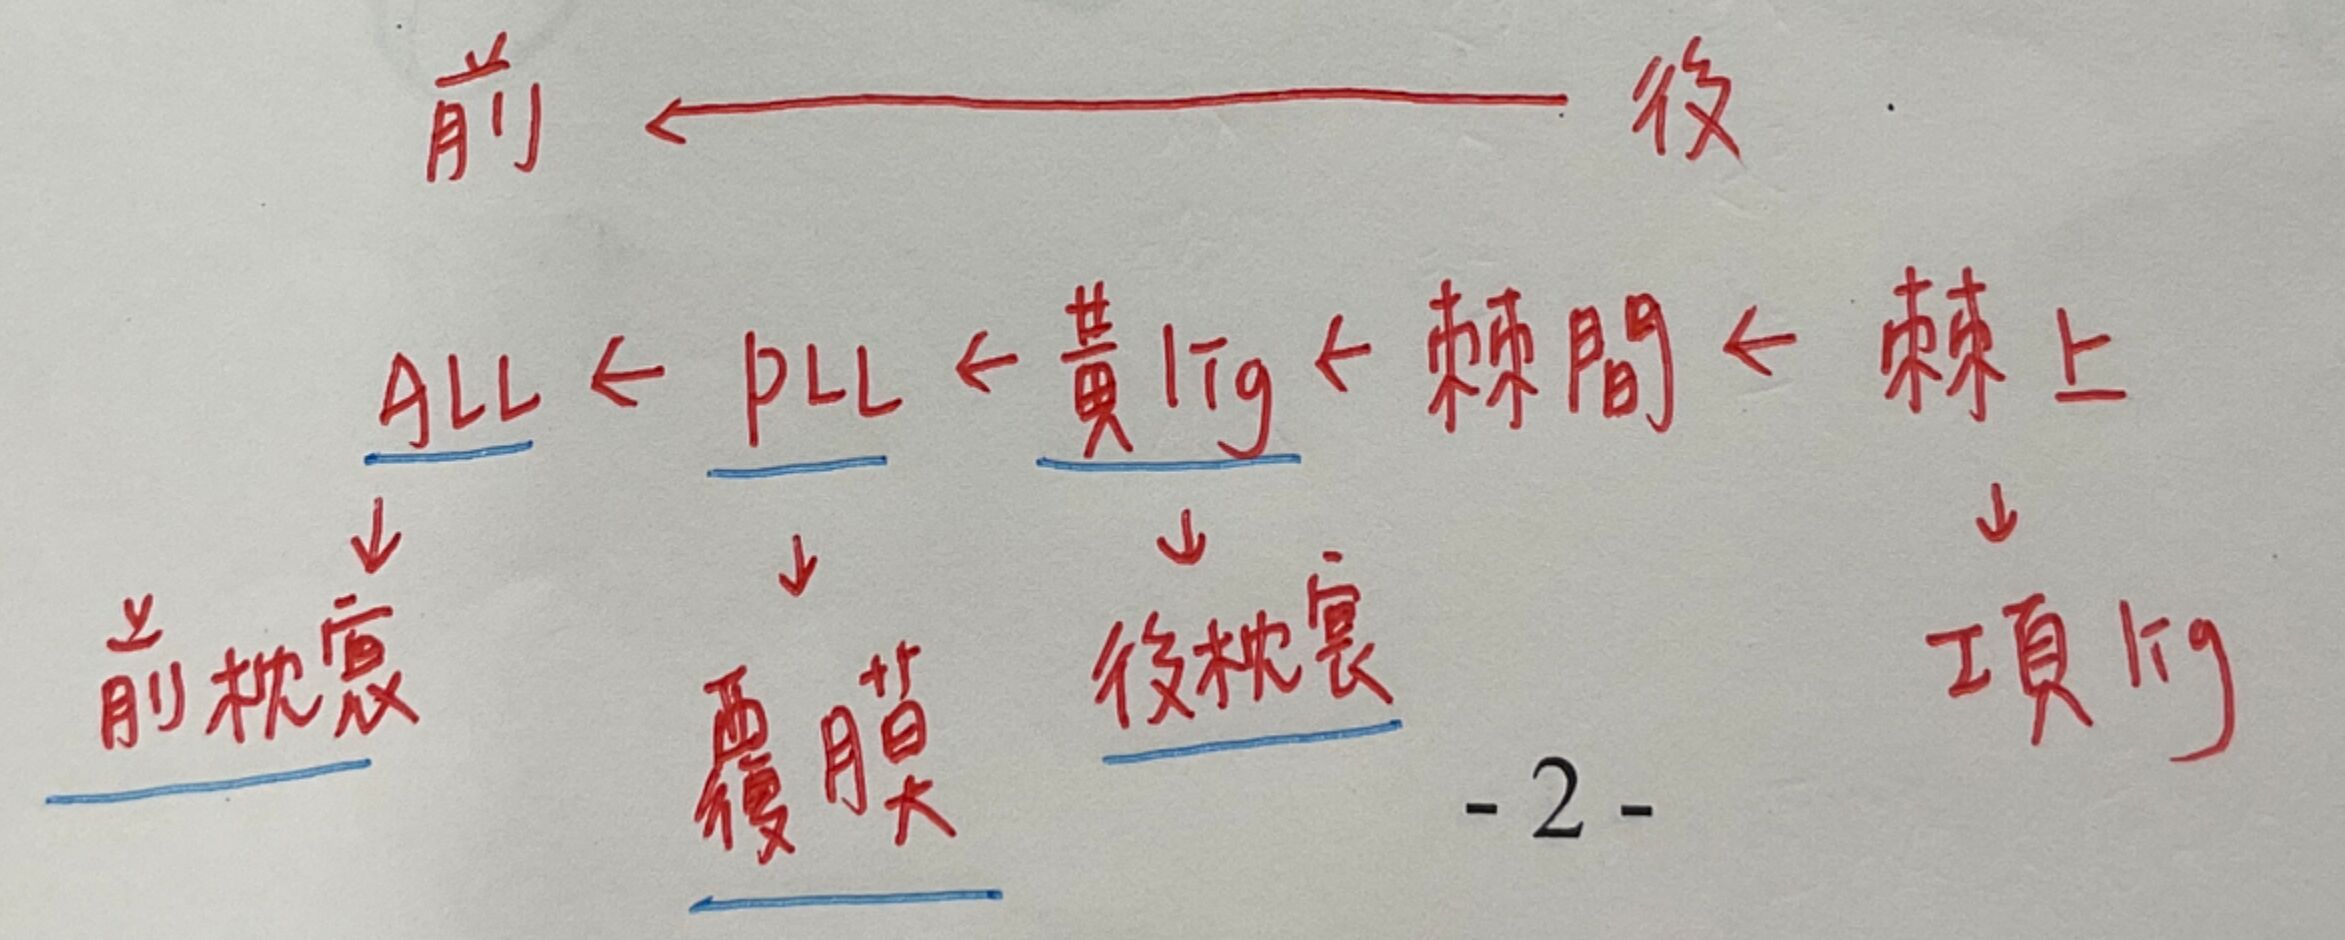 前 ← 後
ALL ← PLL ← 黃lig ← 棘間 ← 棘上
↓ ↓ ↓ ↓
前枕寰 覆膜 後枕寰 項lig
- 2 -